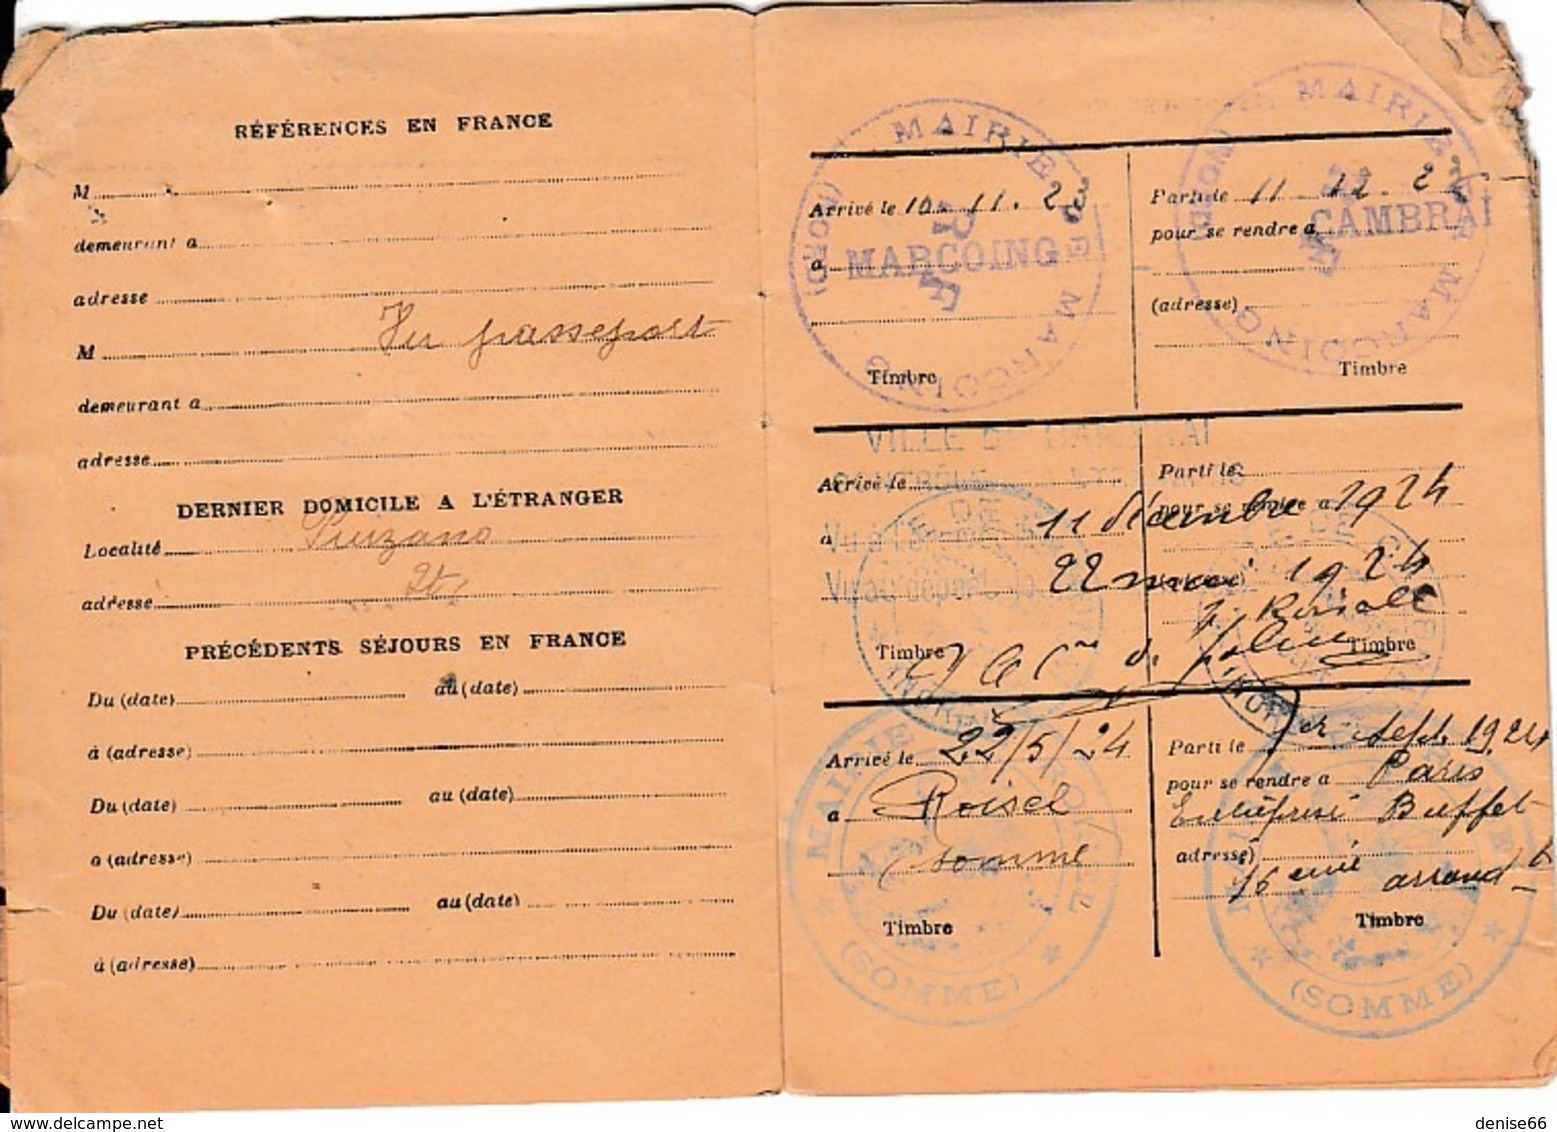 RÉFÉRENCES EN FRANCE
M
demeurant a
adresse
M Vu passeport
demeurant a
adresse
DERNIER DOMICILE A L'ÉTRANGER
Localité
adresse
PRÉCÉDENTS SÉJOURS EN FRANCE
Du (date) au (date)
à (adresse)
Du (date) au (date)
a (adresse)
Du (date) au (date)
à (adresse)
MAIRIE DE MARCOING
(NORD)
Arrivé le 10. 11. 23
a MARCOING
Timbre
MAIRIE DE MARCOING
(NORD)
Parti le 11 12. 23
pour se rendre a CAMBRAI
(adresse)
Timbre
VILLE DE CAMBRAI
Arrivé le
a
Vu au départ le
Timbre
Parti le
pour se rendre a
11 décembre 1924
22 mai 1924
Timbre
Arrivé le 22/5/24
a Roisel
Somme
Timbre
MAIRIE DE ROISEL
(SOMME)
Parti le 1er sept. 1924
pour se rendre a Paris
Entreprise Buffet
adresse)
16 eme arrond t
Timbre
(SOMME)
denise66